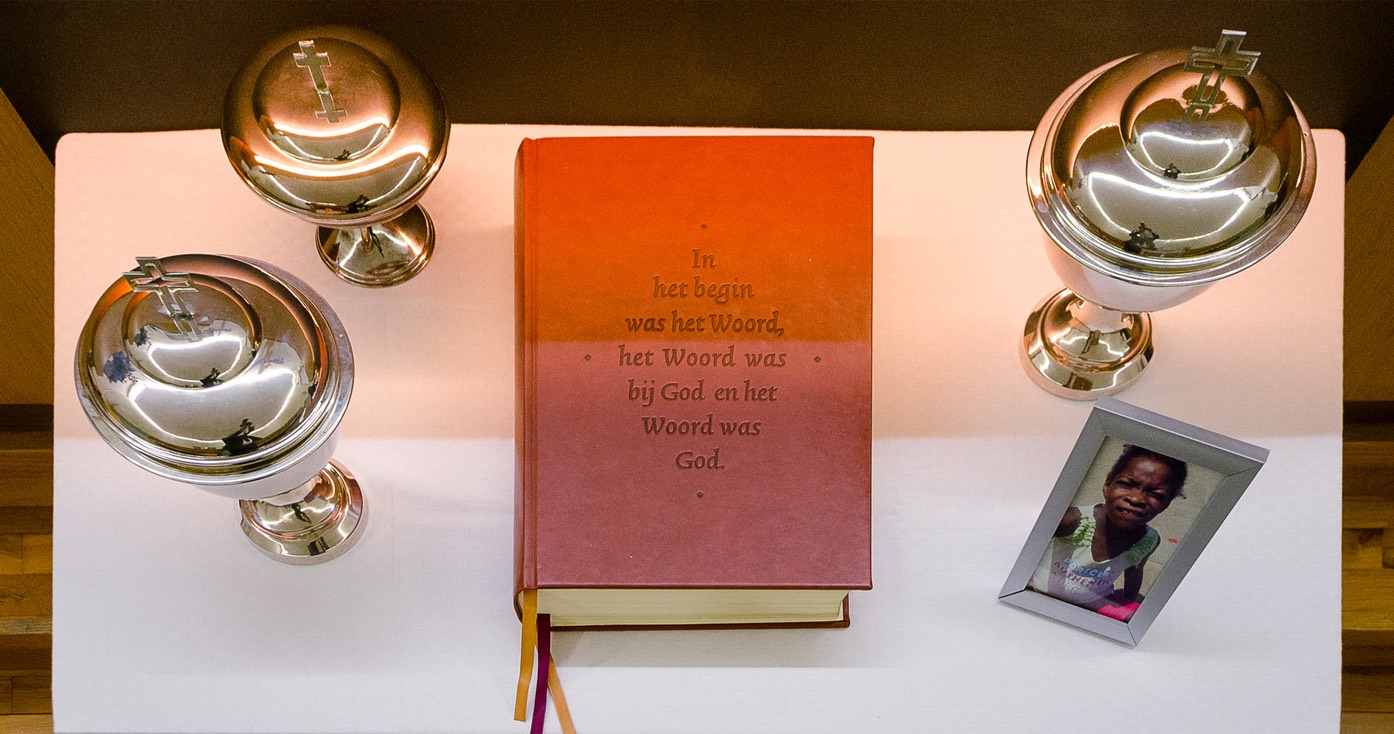 In
het begin
was het Woord,
het Woord was
bij God en het
Woord was
God.